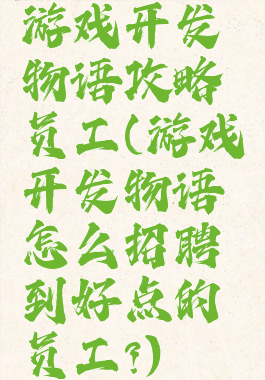 游戏开发
物语攻略
员工(游戏
开发物语
怎么招聘
到好点的
员工?)